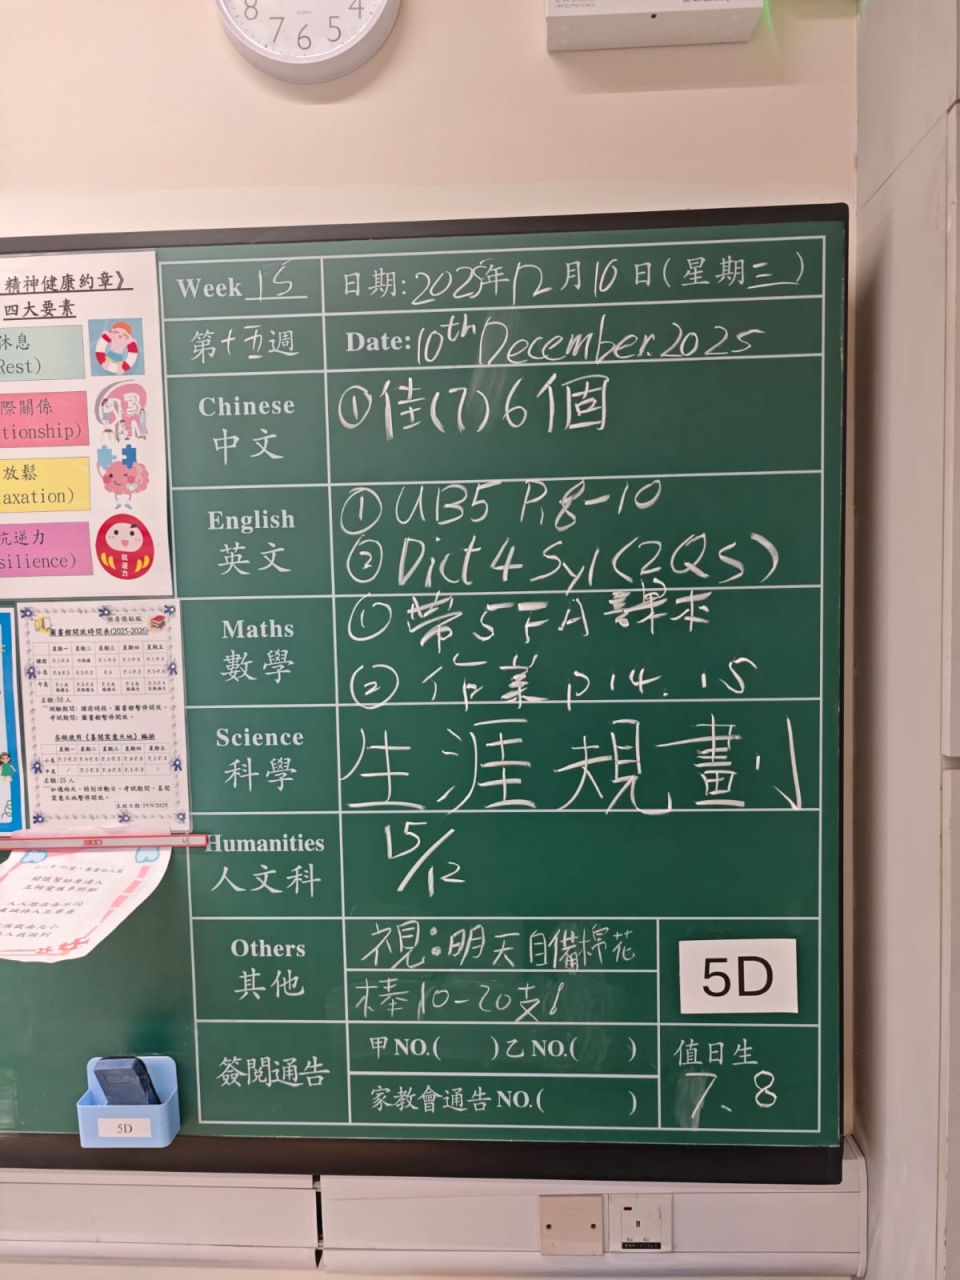 8 7 6 5 4
精神健康約章》
四大要素
休息
Rest)
際關係
tionship)
放鬆
axation)
抗逆力
silience)
圖書館開放時間表(2025-2026)
星期一 星期二 星期三 星期四 星期五
Week 15
日期:2025年12月10日(星期三)
第十五週
Date: 10th December.2025
Chinese
中文
①佳(7)6個
English
英文
① UB5 P.8-10
② Dict 4 Syl (2QS)
Maths
數學
① 帶5下A課本
② 作業 p14.15
Science
科學
生涯規劃
Humanities
人文科
15/12
Others
其他
視:明天自備棉花
棒10-20支!
5D
簽閱通告
甲NO.( )乙NO.( )
家教會通告NO.( )
值日生
7、8
5D